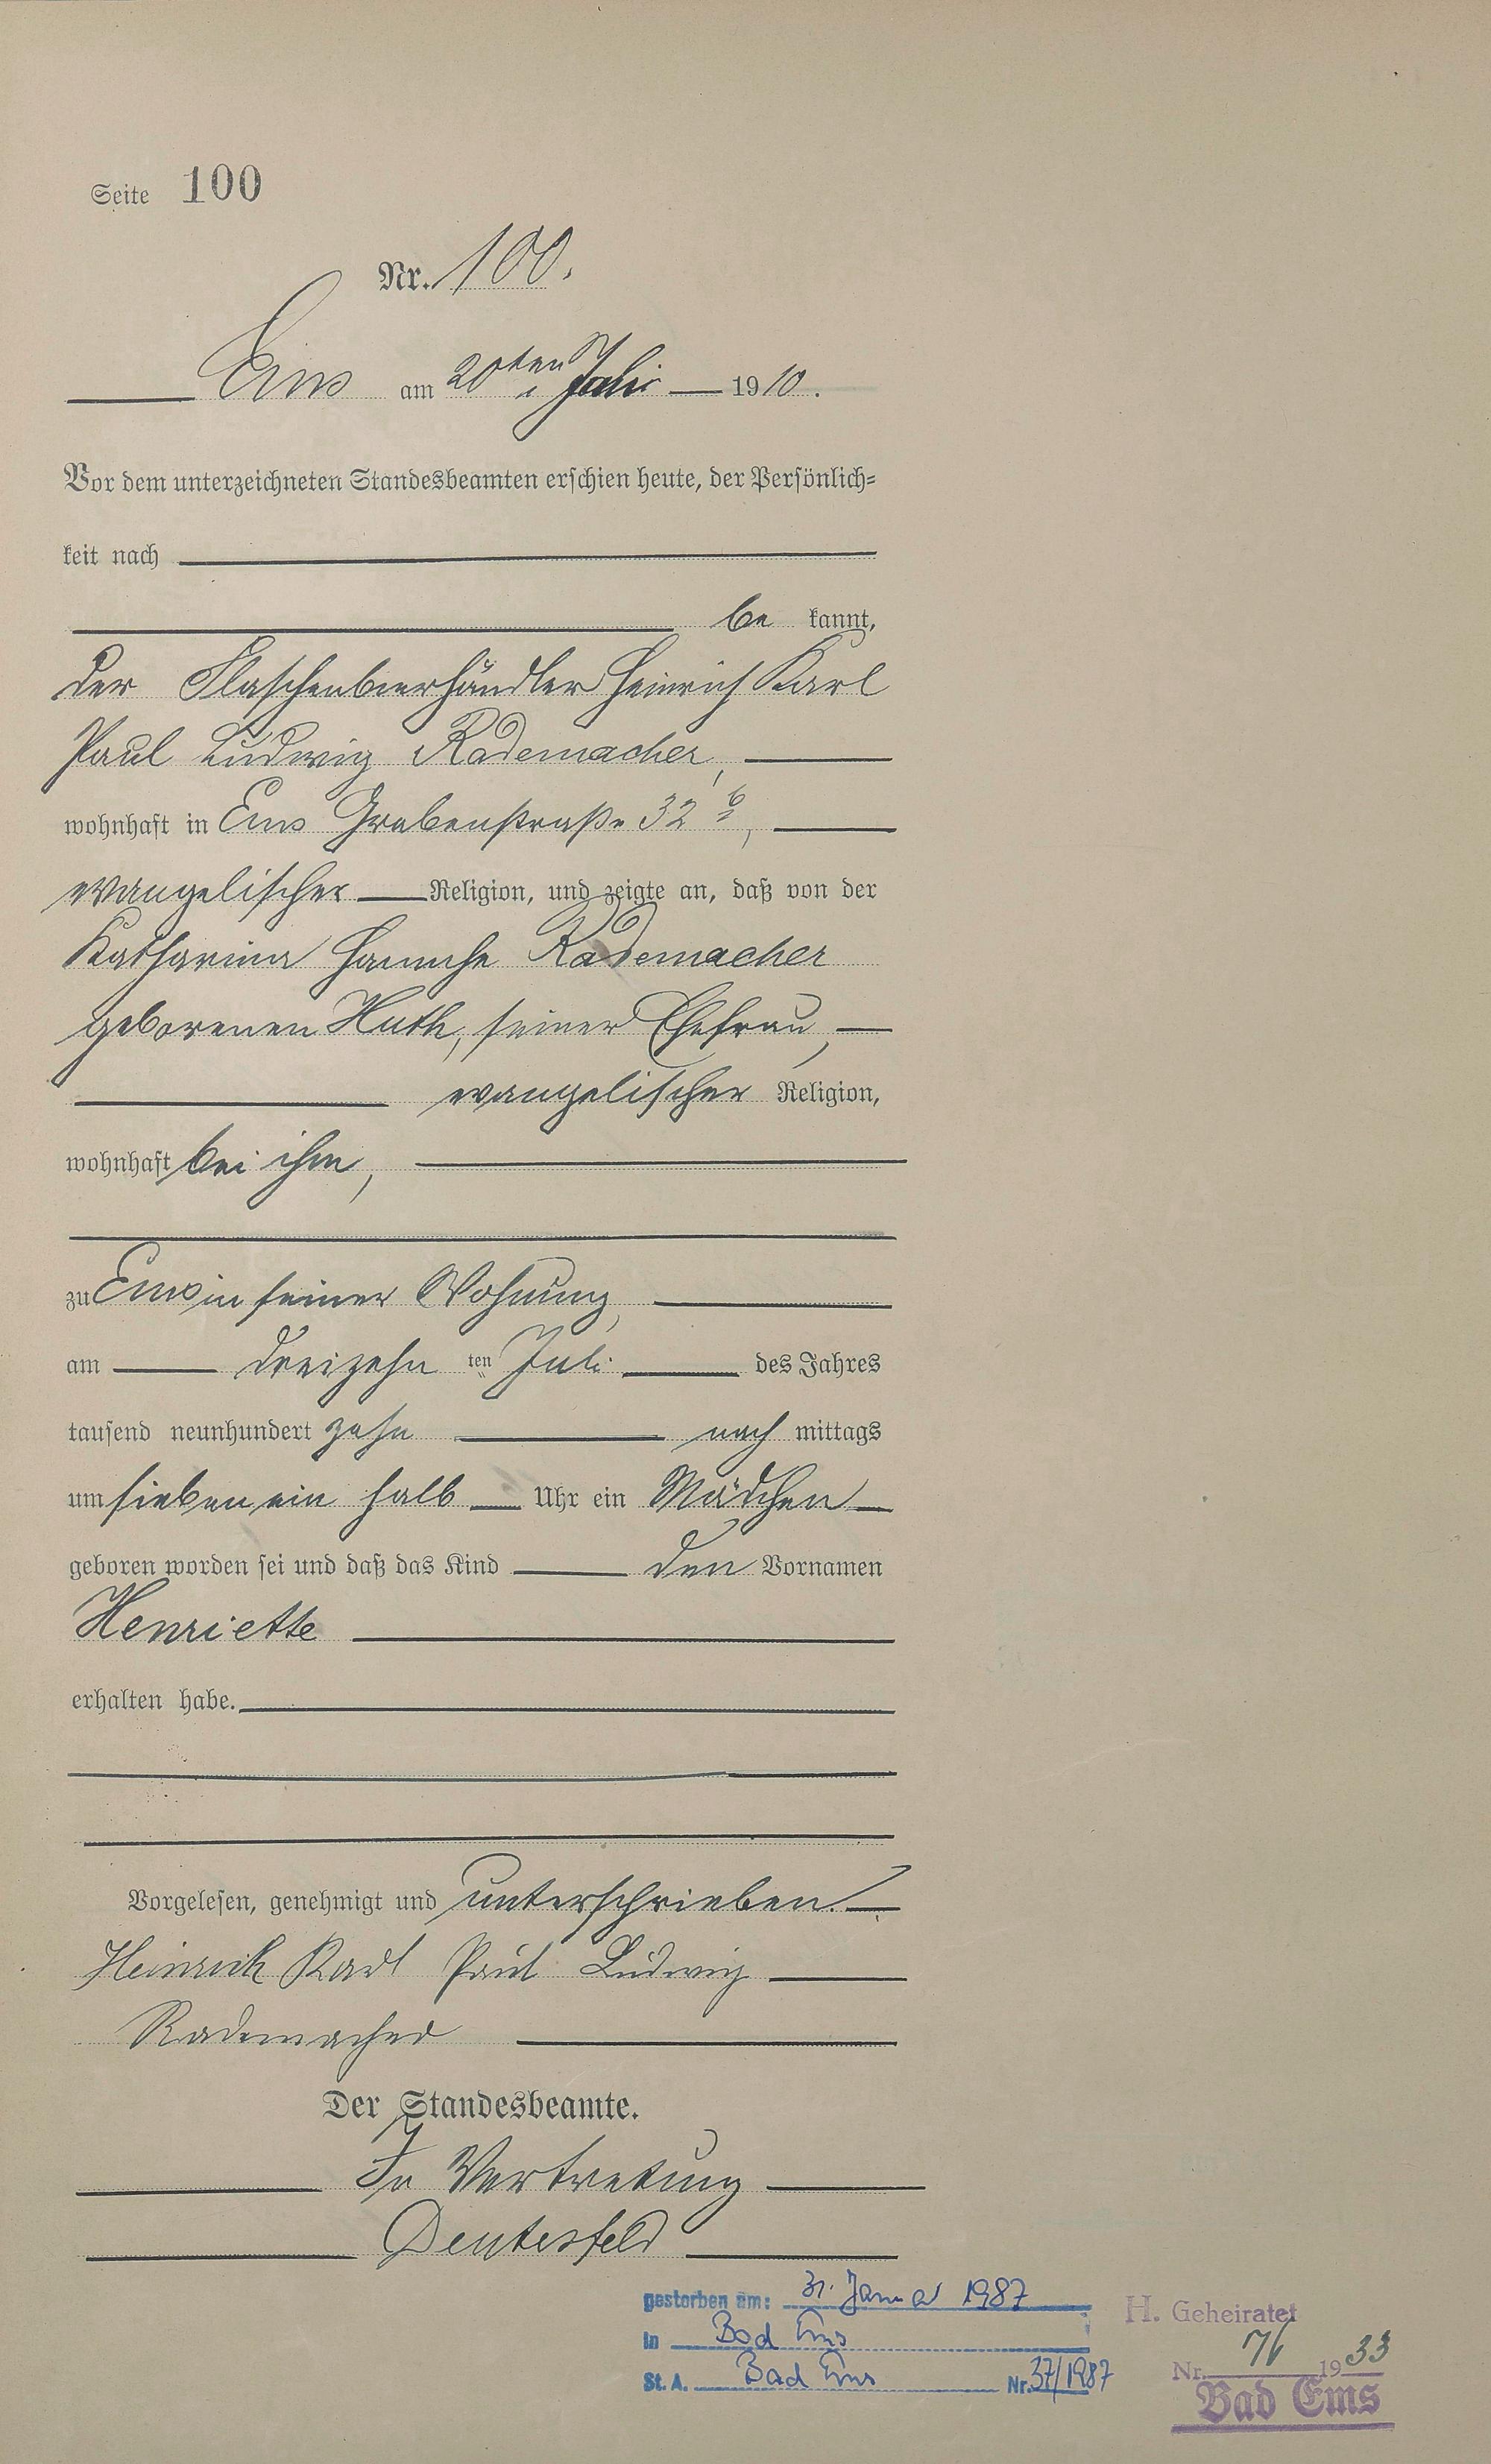 Seite 100
Nr. 100.
Ems am 20ten Juli 1910.
Vor dem unterzeichneten Standesbeamten erschien heute, der Persönlich=
keit nach
be kannt,
der Flaschenbierhändler Heinrich Karl
Paul Ludwig Rademacher,
wohnhaft in Ems Grabenstraße 32 b,
evangelischer Religion, und zeigte an, daß von der
Katharina Rademacher
geborenen Huth, seiner Ehefrau,
evangelischer Religion,
wohnhaft bei ihm,
zu Ems in seiner Wohnung,
am dreizehn ten Juli des Jahres
tausend neunhundert zehn nach mittags
um sieben ein halb Uhr ein Mädchen
geboren worden sei und daß das Kind den Vornamen
Henriette
erhalten habe.
Vorgelesen, genehmigt und unterschrieben.
Heinrich Karl Paul Ludwig
Rademacher
Der Standesbeamte.
In Vertretung
gestorben am: 31. Januar 1987
in Bad Ems
St. A. Bad Ems Nr. 37/1987
H. Geheiratet
Nr. 76 1933
Bad Ems